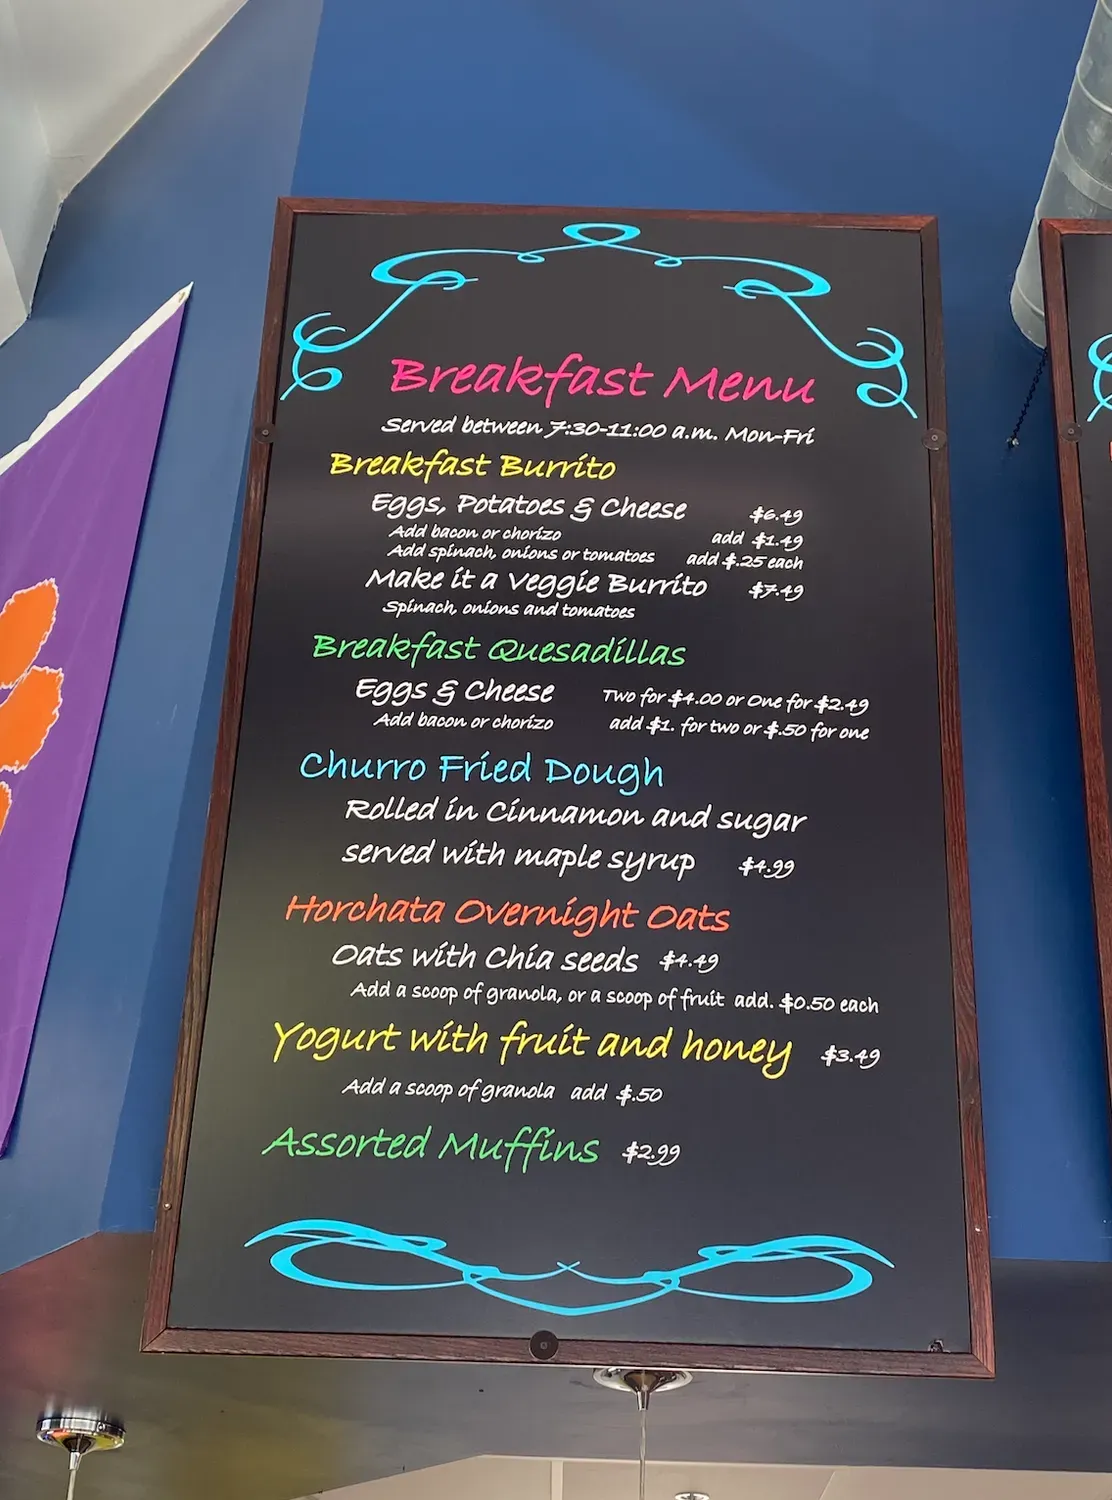 Breakfast Menu
Served between 7:30-11:00 a.m. Mon-Fri
Breakfast Burrito
Eggs, Potatoes & Cheese $6.49
Add bacon or chorizo add $1.49
Add spinach, onions or tomatoes add $.25 each
Make it a Veggie Burrito $7.49
Spinach, onions and tomatoes
Breakfast Quesadillas
Eggs & Cheese Two for $4.00 or One for $2.49
Add bacon or chorizo add $1. for two or $.50 for one
Churro Fried Dough
Rolled in Cinnamon and sugar
served with maple syrup $4.99
Horchata Overnight Oats
Oats with Chia seeds $4.49
Add a scoop of granola, or a scoop of fruit add. $0.50 each
Yogurt with fruit and honey $3.49
Add a scoop of granola add $.50
Assorted Muffins $2.99